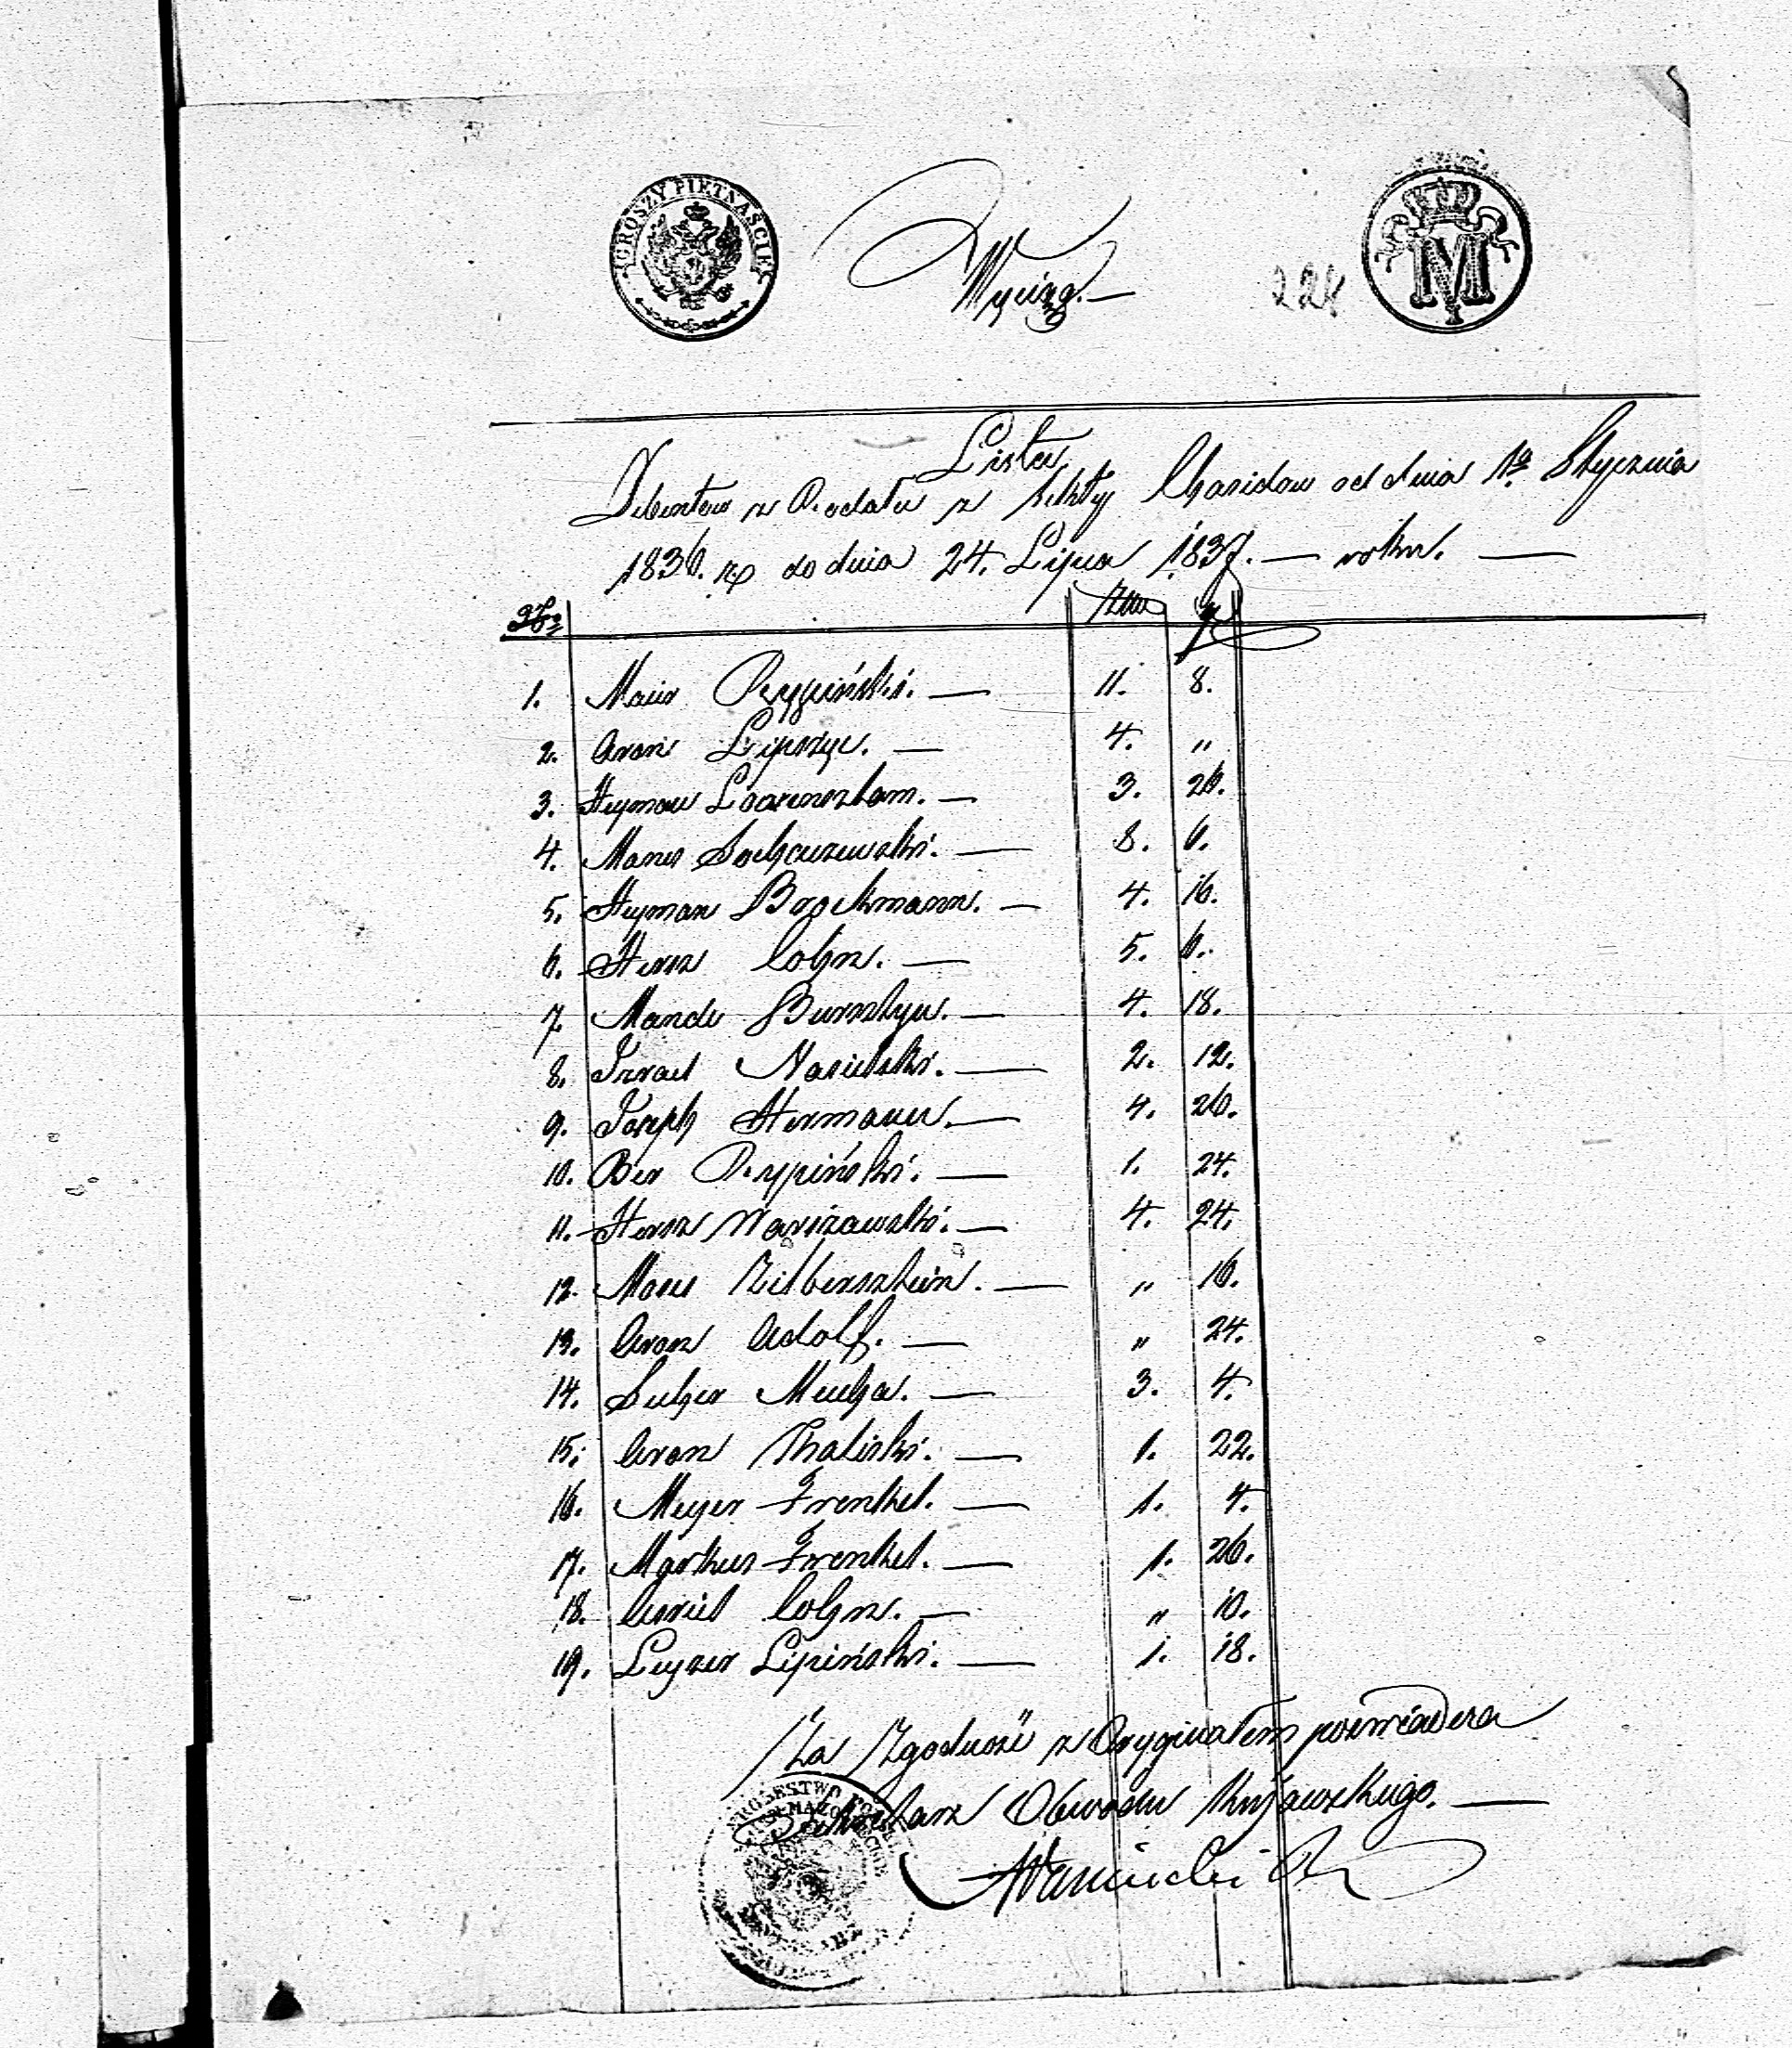 GROSZY PIĘTNAŚCIE
Wyciąg.
224
M
Lista
Debentów z Podatku z Sekty Chasidow od dnia 1go Stycznia
1836. r. do dnia 24. Lipca 1837. — roku. —
No Złote gr
1. Maier Rypiński. — 11. 8.
2. Aron Lipszyc. — 4. "
3. Heyman Loewensztam. — 3. 26.
4. Manes Sochaczewski. — 8. 6.
5. Heyman Brockmann. — 4. 16.
6. Hersz Cohn. — 5. 6.
7. Mande Bursztyn. — 4. 18.
8. Izrael Nasielski. — 2. 12.
9. Joseph Herman. — 4. 26.
10. Ber Rypiński. — 1. 24.
11. Hersz Warszawski. — 4. 24.
12. Moses Zilbersztein. — " 16.
13. Aron Adolf. — " 24.
14. Mucha. — 3. 4.
15. Aron Kaliski. — 1. 22.
16. Meyer Frenkel. — 1. 4.
17. Markus Frenkel. — 1. 26.
18. Cohn. — " 10.
19. Leyzer Lipiński. — 1. 18.
Za Zgodność z Oryginałem poświadcza
Sekretarz Obwodu Kujawskiego. —